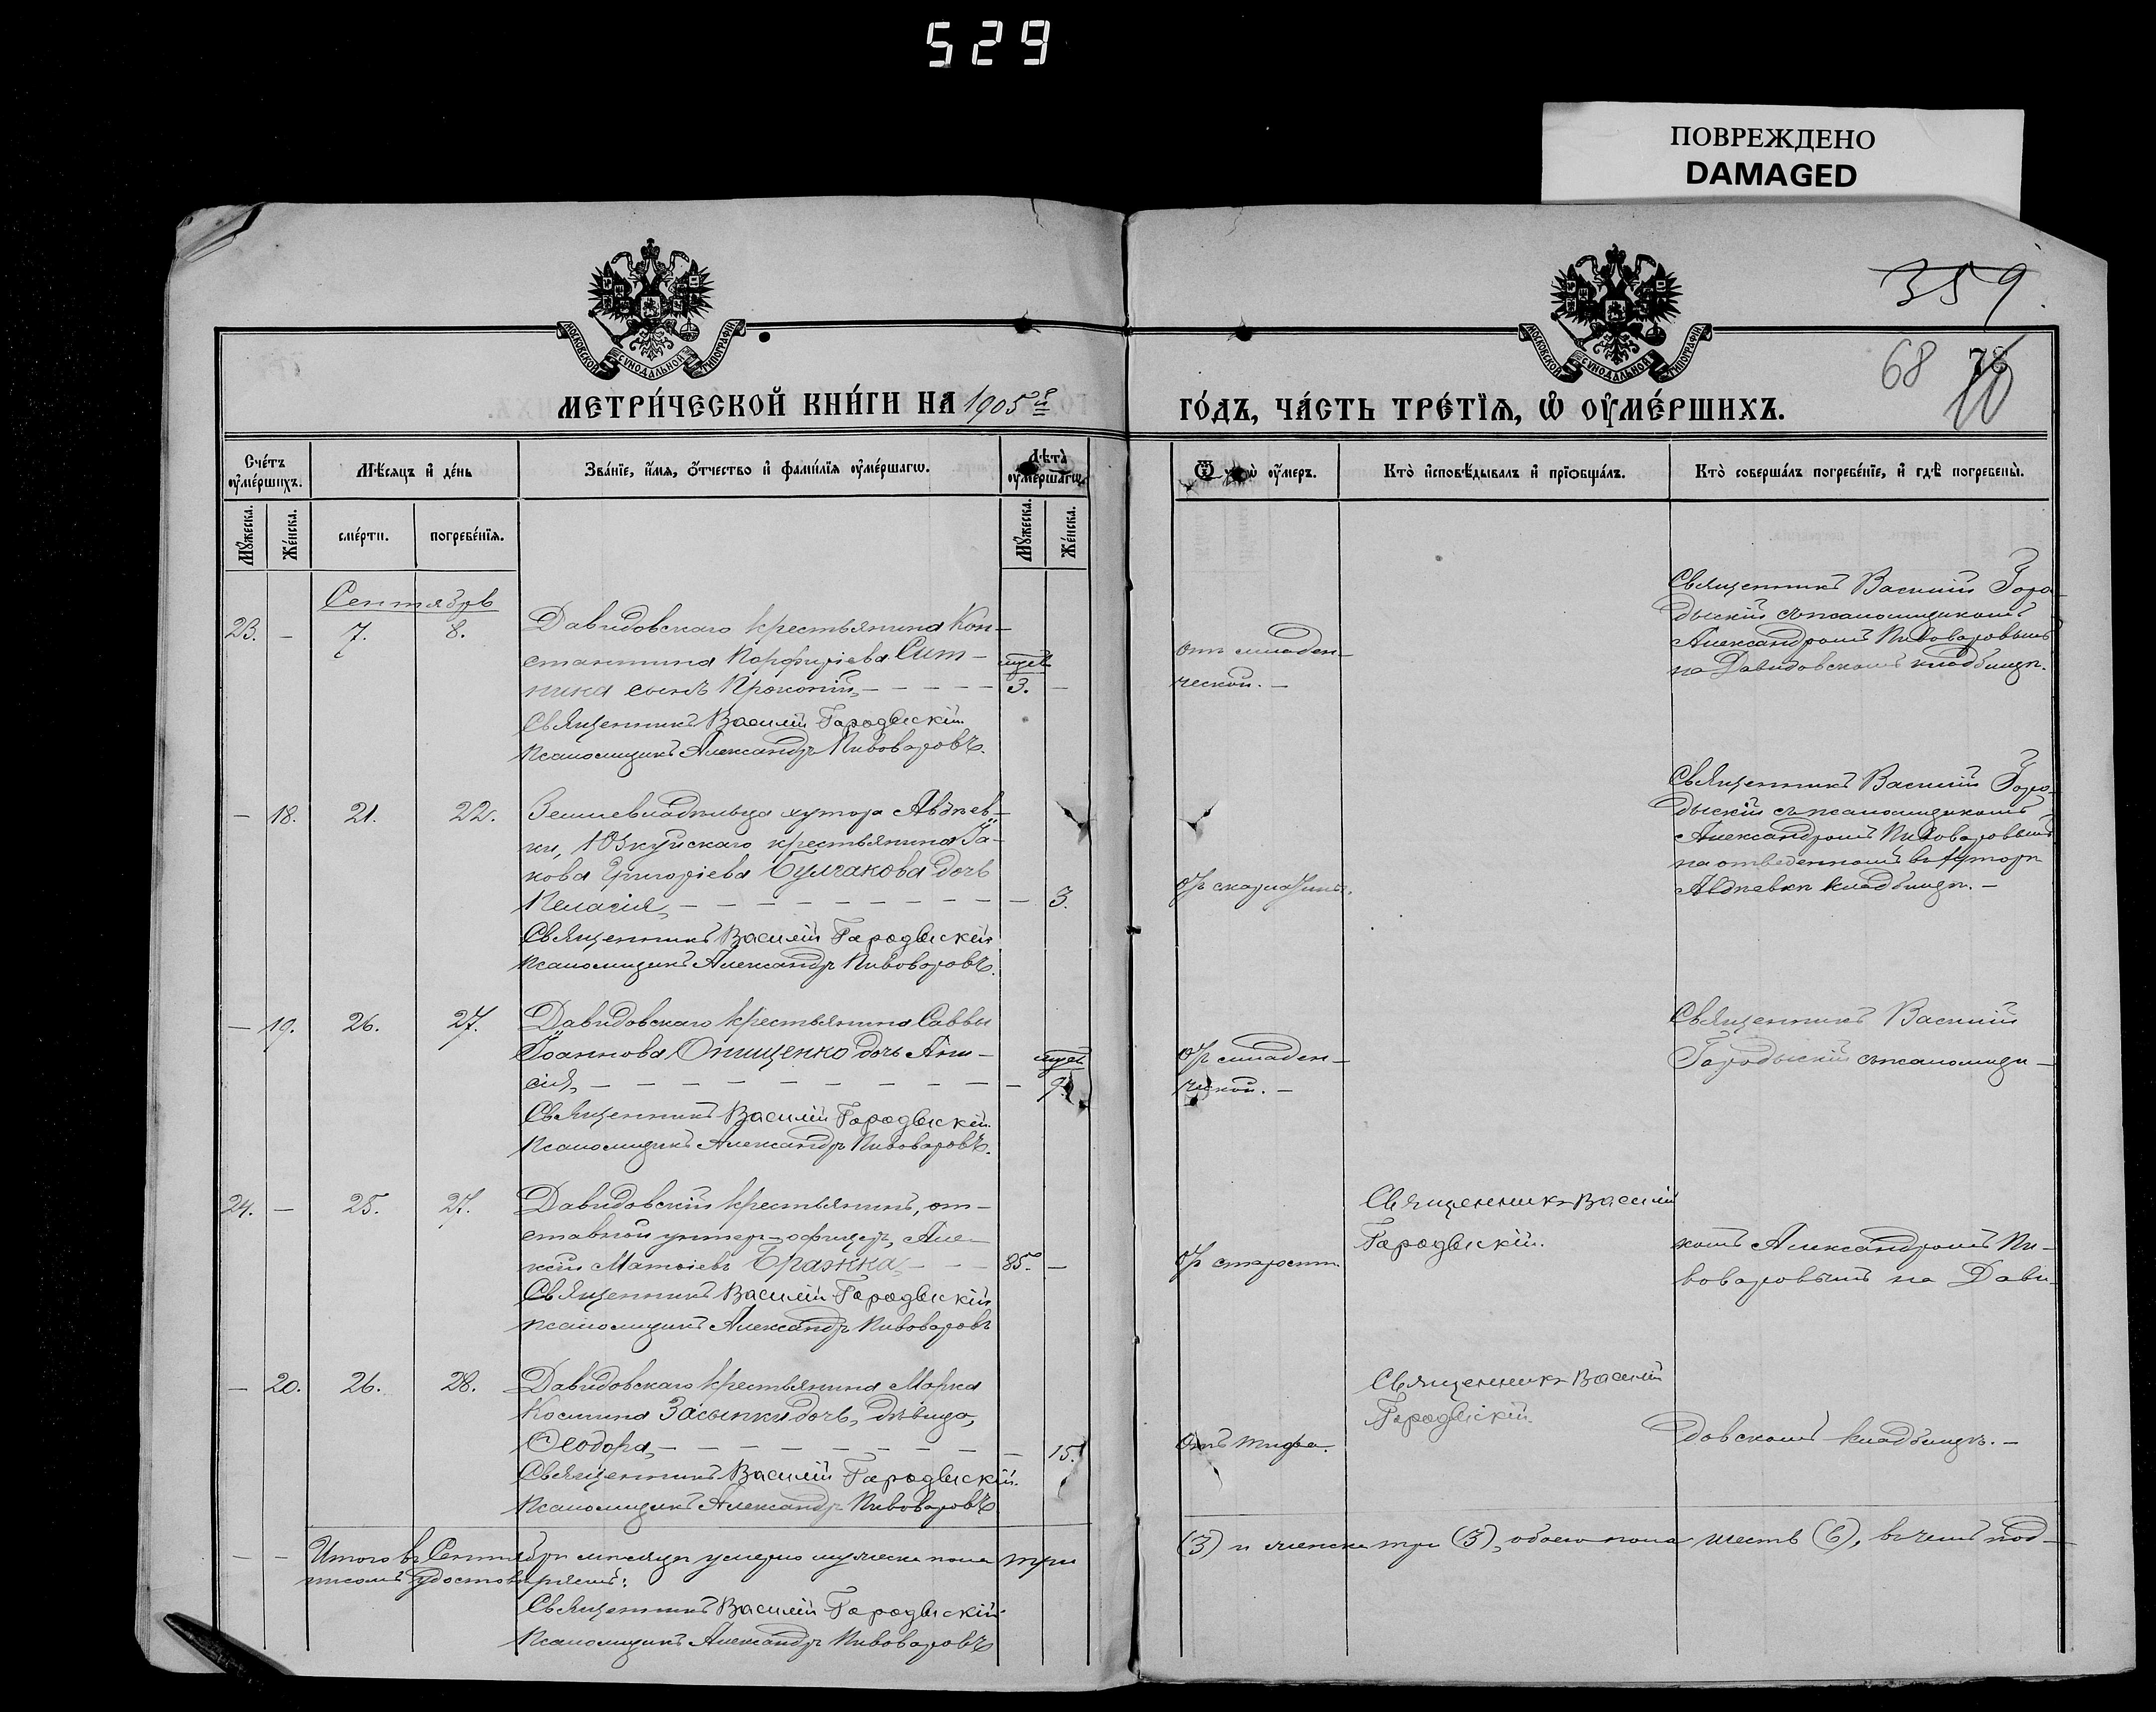 529
ПОВРЕЖДЕНО
DAMAGED
359
68 78
70
МОСКОВСКОЙ СѴНОДАЛЬНОЙ ТИПОГРАФІИ
МОСКОВСКОЙ СѴНОДАЛЬНОЙ ТИПОГРАФІИ
МЕТРИ́ЧЕСКОЙ КНИ́ГИ НА 1905й
ГО́ДЪ, ЧА́СТЬ ТРЕ́ТІѦ, Ѡ҆ ОУ҆МЕ́РШИХЪ.
Сче́тъ оу҆ме́ршихъ.
Мѣ́сяцъ и҆ де́нь
Зва́ніе, и҆́мя, ѻ҆́тчество и҆ фами́лія оу҆ме́ршагѡ.
Лѣ́та оу҆ме́ршагѡ.
Ѿ чегѡ̀ оу҆́меръ.
Кто̀ и҆сповѣ́дывалъ и҆ прїѡбща́лъ.
Кто̀ соверша́лъ погребе́нїе, и҆ гдѣ̀ погребены̀.
Мꙋ́жеска.
Же́нска.
сме́рти.
погребе́нїя.
Мꙋ́жеска.
Же́нска.
Сентябрь
23. – 7. 8.
Давидовскаго крестьянина Кон-
стантина Порфиріева Сит-
ника сынъ Прокопій, – – – – –
мѣсц.
3. –
Священникъ Василій Городыскій
Псаломщикъ Александръ Пивоваровъ.
Отъ младен-
ческой. –
Священникъ Василій Горо-
дыскій съ псаломщикомъ
Александромъ Пивоваровымъ
на Давидовскомъ кладбищѣ.
– 18. 21. 22.
Землевладѣльца хутора Авдѣев-
ки, Юзкуйскаго крестьянина Іа-
кова Григоріева Булгакова дочь
Пелагія, – – – – – – – – – – 3.
Священникъ Василій Городыскій
Псаломщикъ Александръ Пивоваровъ.
Отъ скарлатины.
Священникъ Василій Горо-
дыскій съ псаломщикомъ
Александромъ Пивоваровымъ
на отведенномъ въ хуторѣ
Авдѣевкѣ кладбищѣ. –
– 19. 26. 27.
Давидовскаго крестьянина Саввы
Іоаннова Онищенко дочь Ани-
сія, – – – – – – – – – –
мѣсц.
9.
Священникъ Василій Городыскій
Псаломщикъ Александръ Пивоваровъ.
Отъ младен-
ческой. –
Священникъ Василій
Городыскій съ псаломщи-
24. – 25. 27.
Давидовскій крестьянинъ, от-
ставной унтеръ-офицеръ, Але-
ксій Матѳіевъ Бражка, – – – 85. –
Священникъ Василій Городыскій
Псаломщикъ Александръ Пивоваровъ
Отъ старости.
Священникъ Василій
Городыскій.
комъ Александромъ Пи-
воваровымъ на Дави-
– 20. 26. 28.
Давидовскаго крестьянина Марка
Космина Засыпки дочь, дѣвица,
Ѳеодора, – – – – – – – – – 15.
Священникъ Василій Городыскій.
Псаломщикъ Александръ Пивоваровъ
Отъ тифа.
Священникъ Василій
Городыскій.
довскомъ кладбищѣ. –
– – Итого въ Сентябрѣ мѣсяцѣ умерло мужеска пола три
(3) и женска три (3), обоего пола шесть (6), въ чемъ под-
писомъ удостовѣряемъ:
Священникъ Василій Городыскій
Псаломщикъ Александръ Пивоваровъ